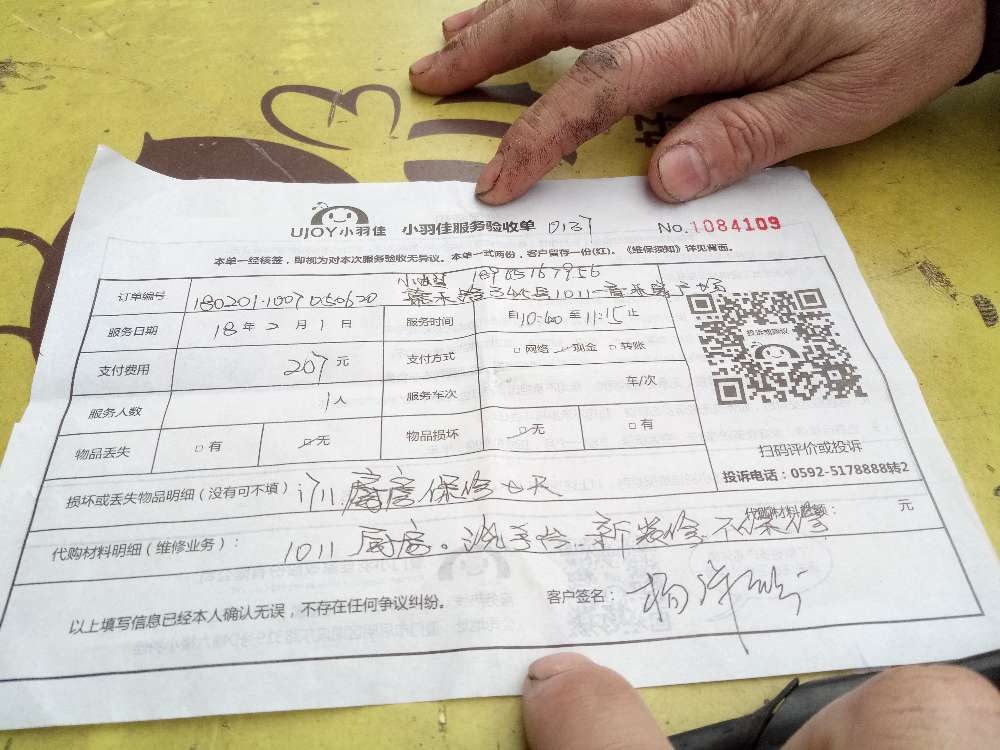 好
UJOY小羽佳 小羽佳服务验收单 No.1084109
本单一经核签，即视为对本次服务验收无异议。本单一式两份，客户留存一份(红)。《维保须知》详见背面。
订单编号 180201·1007050620 18965167956
服务日期 18年2月1日 服务时间 自10:40至11:15止
支付费用 207元 支付方式 网络 现金 转账
服务人数 1人 服务车次 车/次
物品丢失 有 无 物品损坏 无 有
投诉或建议
扫码评价或投诉
投诉电话：0592-5178888转2
损坏或丢失物品明细（没有可不填） 1011 厨房保修七天
代购材料总额： 元
代购材料明细（维修业务）： 1011 厨房。洗手台 不保修
以上填写信息已经本人确认无误，不存在任何争议纠纷。 客户签名：